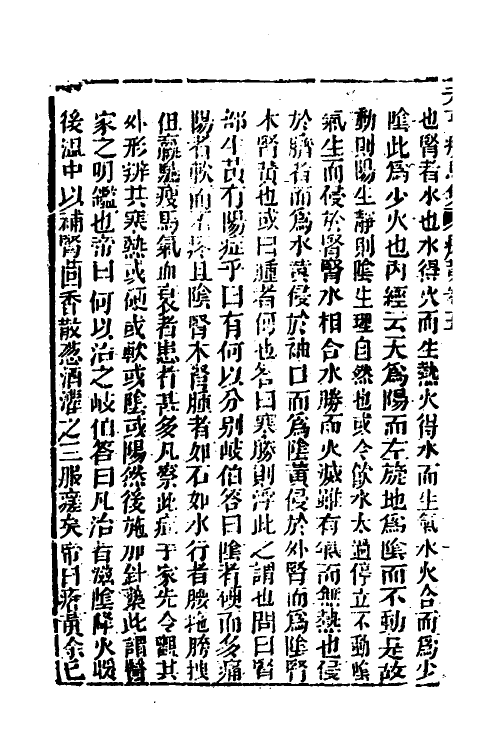 也腎者水也水得火而生熱火得水而生氣水火合而爲少
陰此爲少火也內經云天爲陽而左旋地爲陰而不動是故
動則陽生靜則陰生理自然也或令飲水太過停立不動陰
氣生而侵於腎腎水相合水勝而火滅雖有氣而無熱也侵
於臍者而爲水黃侵於袖口而爲陰黃侵於外腎而爲陰腎
木腎黃也或曰腫者何也答曰寒勝則浮此之謂也問曰腎
部生黃有陽症乎曰有何以分別岐伯答曰陰者硬而多痛
陽者軟而 疼且陰腎木腎腫者如石如水行者腰拖胯拽
但羸駑瘦馬氣血衰者患者甚多凡察此症于家先令觀其
外形辨其寒熱或硬或軟或陰或陽然後施加針藥此謂醫
家之明鑑也帝曰何以治之岐伯答曰凡治者滋陰降火暖
後溫中以補腎茴香散葱酒灌之三服瘥矣帝曰瘡黃余已